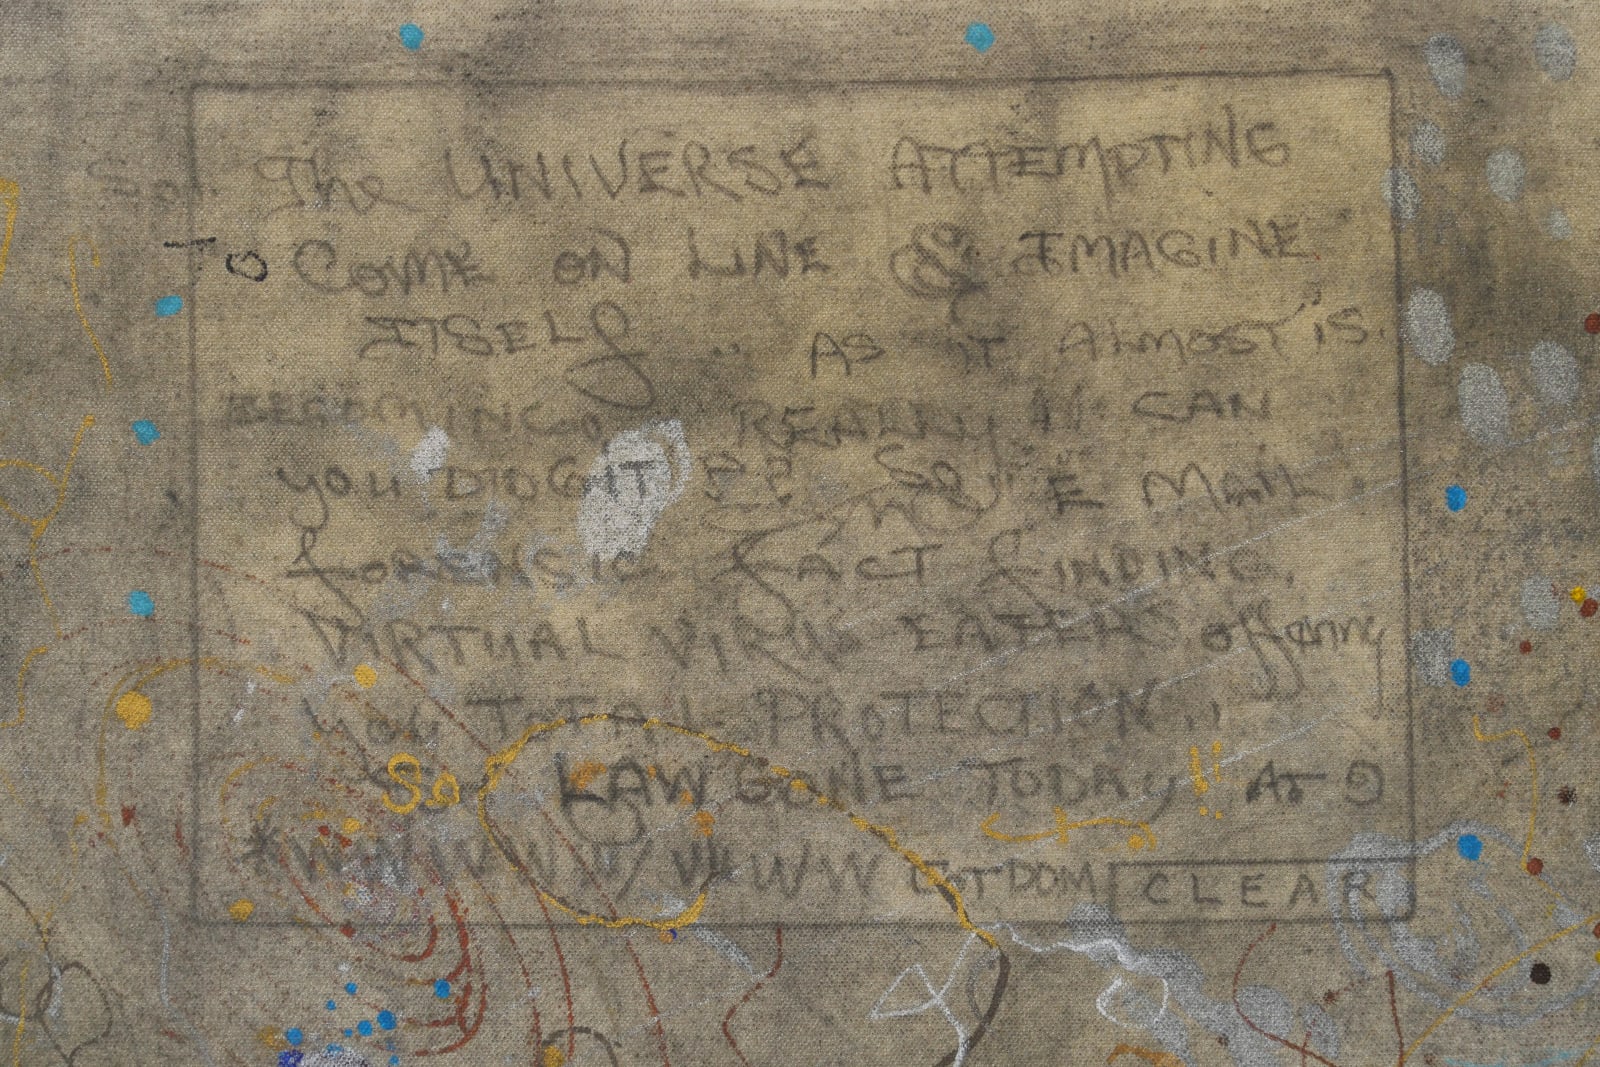 So. The UNIVERSE ATTEMPTING
To COME ON LINE & IMAGINE
ITSELf .. AS IT AlmOST IS.
BECOMING, REALLY !! CAN
you DIDGIT So.. E MAIL.
fORENSIC fACT fINDING.
VIRTUAL VIRUS EATERS offering
you TOTAL PROTECTION ..
So LAW GONE TODAy !! AT 9
*WWWWW/ WWWW DOT DOM CLEAR